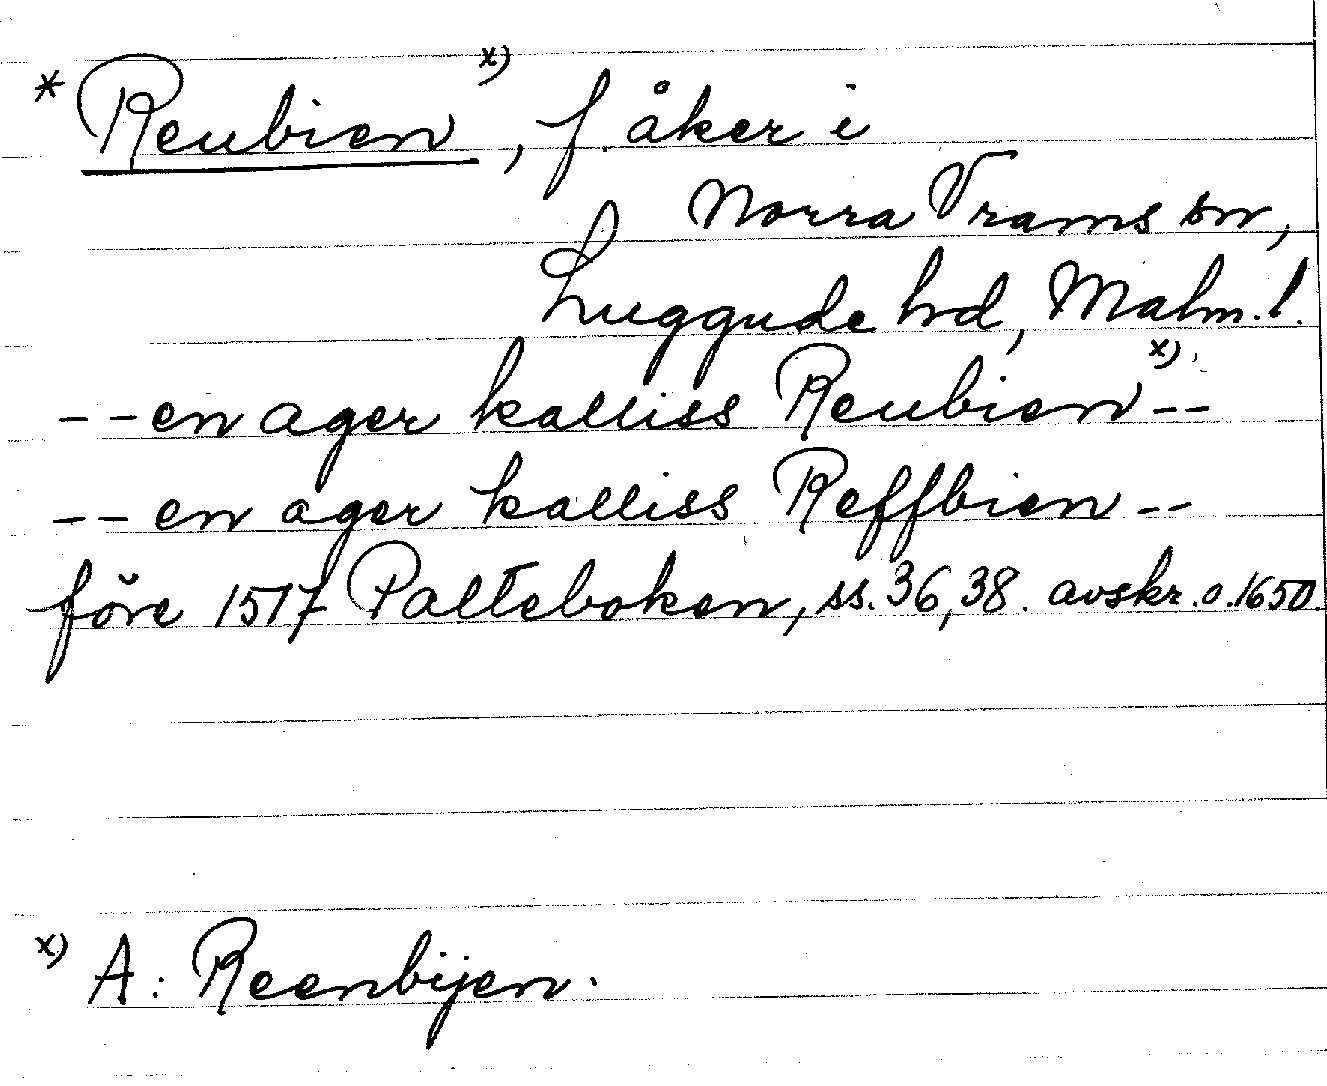 * Reubien x), f. åker i
Norra Vrams sn,
Luggude hd, Malm. l.
--en ager kalliss Reubien x)--
--en ager kalliss Reffbien--
före 1517 Palteboken, ss. 36, 38. avskr. o. 1650.
x) A: Reenbijen.